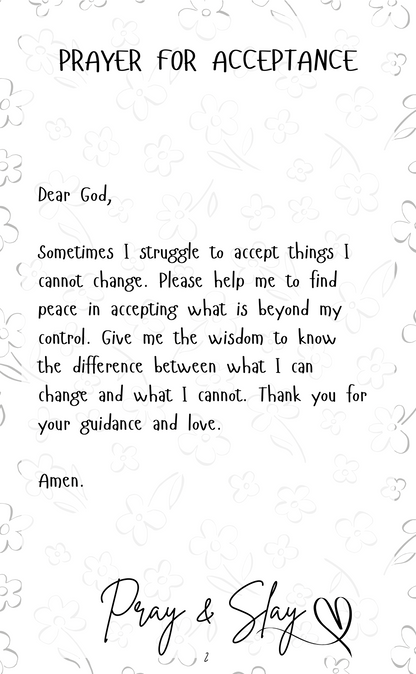 PRAYER FOR ACCEPTANCE
Dear God,
Sometimes I struggle to accept things I
cannot change. Please help me to find
peace in accepting what is beyond my
control. Give me the wisdom to know
the difference between what I can
change and what I cannot. Thank you for
your guidance and love.
Amen.
Pray & Slay
2